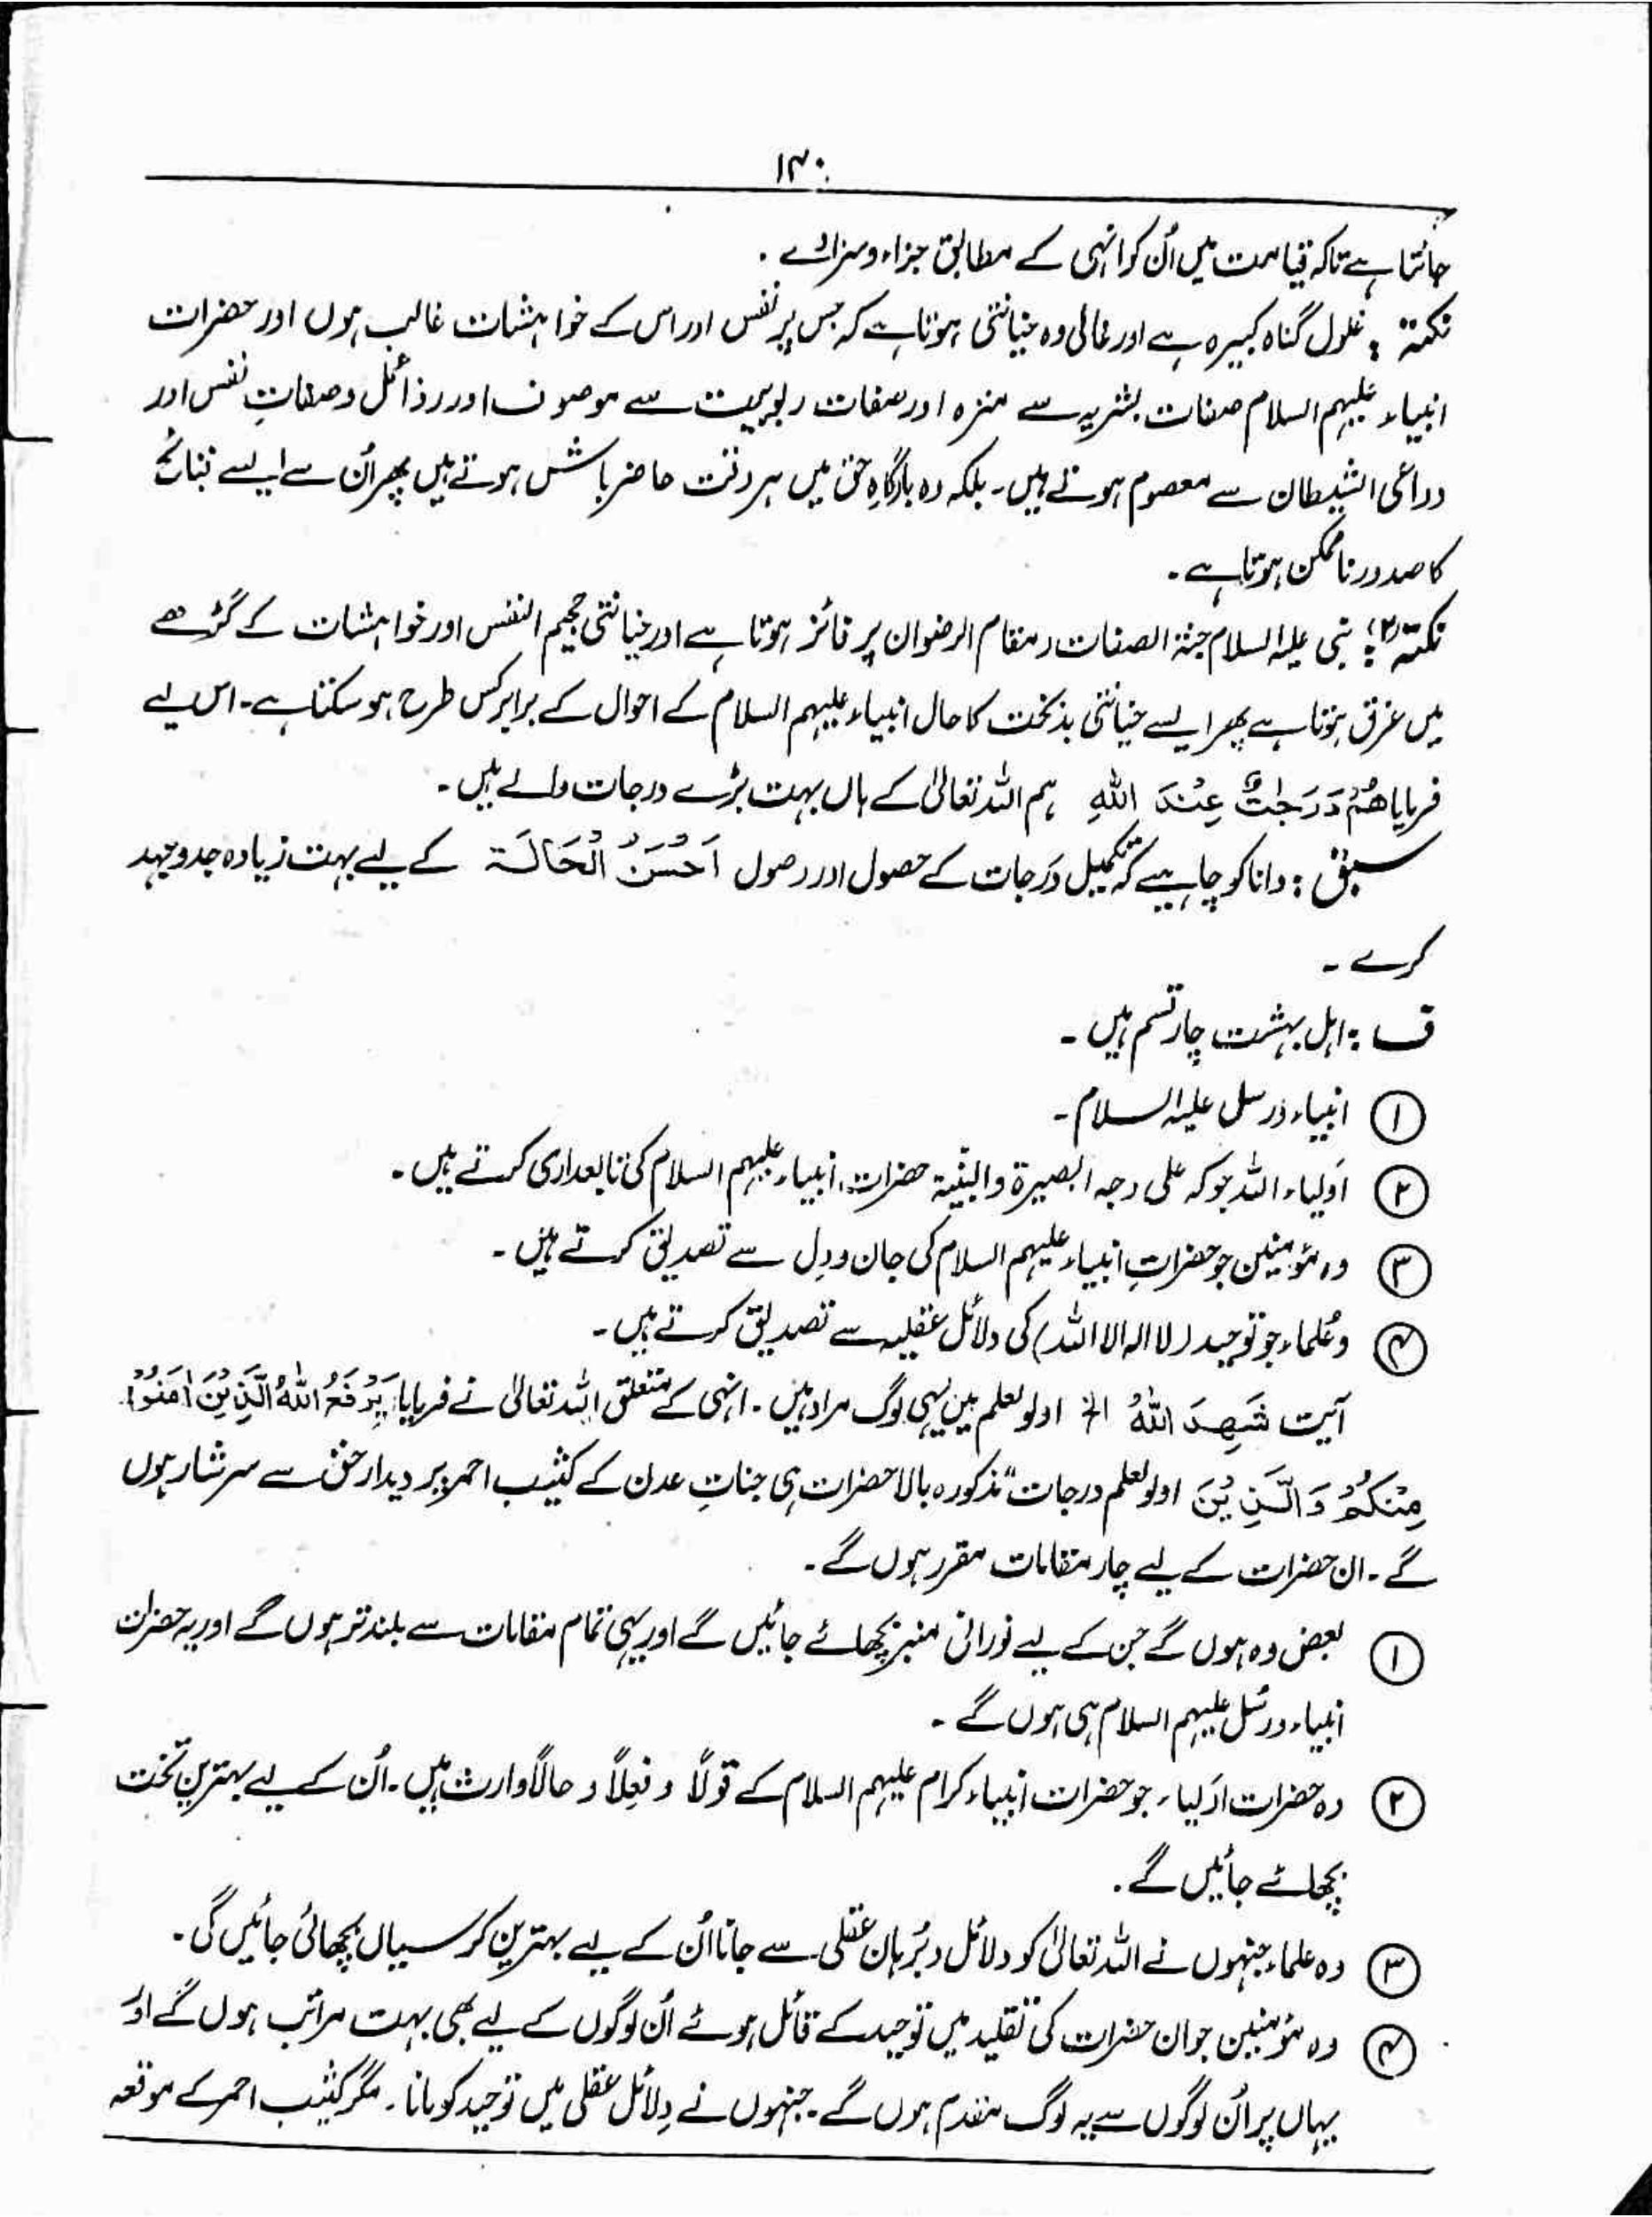 ۱۳۰
جانتا ہے تاکہ قیامت میں اُن کو انہی کے مطابق جزاء و سزا دے ۔
نکتہ : غلول گناہ کبیرہ ہے اور غالی وہ خیانتی ہوتا ہے کہ جس پر نفس اور اس کے خواہشات غالب ہوں اور حضرات
انبیاء علیہم السلام صفات بشریہ سے منزہ اور صفات ربوبیت سے موصوف اور رذائل و صفاتِ نفس اور
دواعی الشیطان سے معصوم ہوتے ہیں۔ بلکہ وہ بارگاہِ حق میں ہر وقت حاضر باش ہوتے ہیں پھر اُن سے ایسے نتائج
کا صدور ناممکن ہوتا ہے ۔
نکتہ ۲ : نبی علیہ السلام جنۃ الصفات و مقام الرضوان پر فائز ہوتا ہے اور خیانتی جحیم النفس اور خواہشات کے گڑھے
میں غرق ہوتا ہے پھر ایسے خیانتی بدبخت کا حال انبیاء علیہم السلام کے احوال کے برابر کس طرح ہو سکتا ہے ۔ اس لیے
فرمایا هُمْ دَرَجٰتٌ عِنْدَ اللّٰہِ ہم اللہ تعالیٰ کے ہاں بہت بڑے درجات والے ہیں ۔
سبق : دانا کو چاہیے کہ تکمیل دَرجات کے حصول اور وصول اَحْسَنُ الْحَالَۃ کے لیے بہت زیادہ جدوجہد
کرے ۔
ف : اہل بہشت چار قسم ہیں ۔
① انبیاء و رسل علیہ السلام ۔
② اَولیاء اللہ جو کہ علی وجہ البصیرۃ والبیّنۃ حضرات انبیاء علیہم السلام کی تابعداری کرتے ہیں ۔
③ وہ مؤمنین جو حضراتِ انبیاء علیہم السلام کی جان و دِل سے تصدیق کرتے ہیں ۔
④ وعُلماء جو توحید (لا الہ الا اللہ) کی دلائل عقلیہ سے تصدیق کرتے ہیں ۔
آیت شَهِدَ اللّٰہُ الخ اولولعلم میں یہی لوگ مراد ہیں ۔ انہی کے متعلق اللہ تعالیٰ نے فرمایا یَرْفَعُ اللّٰہُ الَّذِیْنَ اٰمَنُوْا
مِنْكُمْ وَ الَّذِیْنَ اولولعلم درجات" مذکورہ بالا حضرات ہی جناتِ عدن کے کثیب احمر پر دیدار حق سے سرشار ہوں
گے ۔ ان حضرات کے لیے چار مقامات مقرر ہوں گے ۔
① بعض وہ ہوں گے جن کے لیے نورانی منبر بچھائے جائیں گے اور یہی تمام مقامات سے بلند تر ہوں گے اور یہ حضرات
انبیاء و رسُل علیہم السلام ہی ہوں گے ۔
② وہ حضرات اَولیاء جو حضرات انبیاء کرام علیہم السلام کے قولًا و فعِلاً و حالاً وارث ہیں ۔ اُن کے لیے بہترین تخت
بچھائے جائیں گے ۔
③ وہ علماء جنہوں نے اللہ تعالیٰ کو دلائل و بُرہان عقلی سے جانا اُن کے لیے بہترین کرسیاں بچھائی جائیں گی ۔
④ وہ مؤمنین جو ان حضرات کی تقلید میں توحید کے قائل ہوئے اُن لوگوں کے لیے بھی بہت مراتب ہوں گے اور
یہاں پر اُن لوگوں سے یہ لوگ مقدم ہوں گے ۔ جنہوں نے دِلائل عقلی میں توحید کو مانا ۔ مگر کثیب احمر کے موقعہ